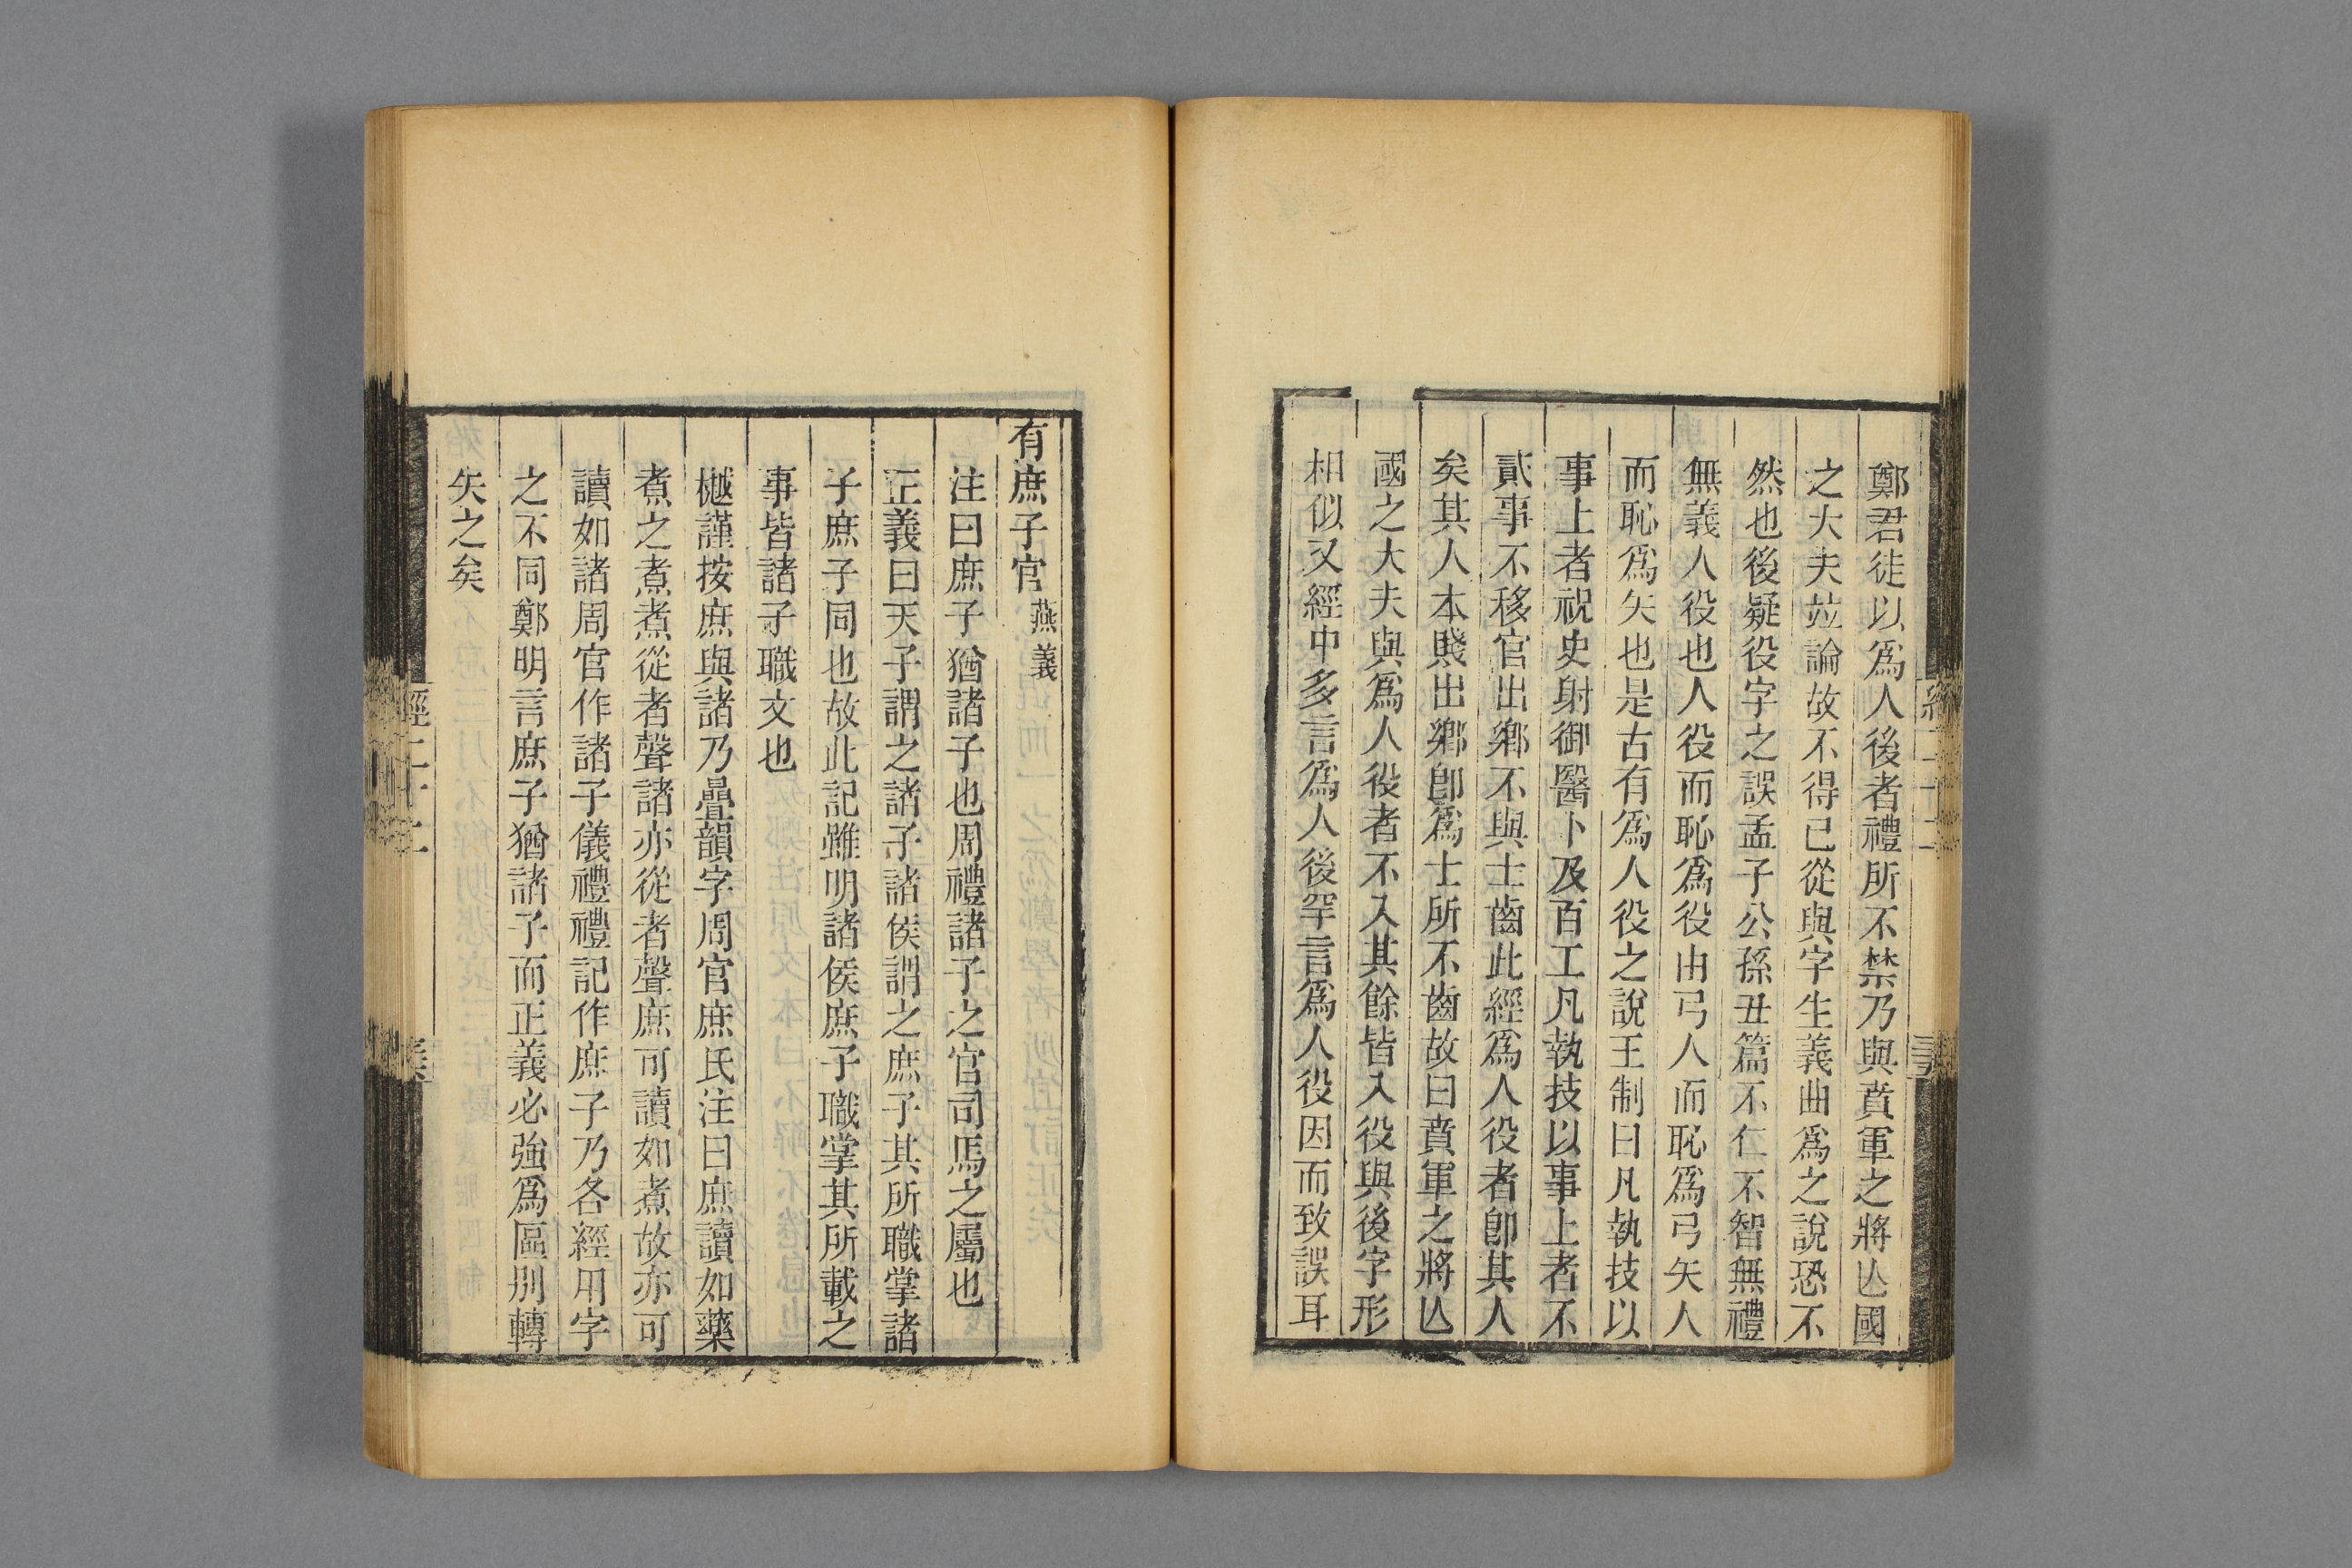 鄭君徒以爲人後者禮所不禁乃與賁軍之將亾國
之大夫竝論故不得已從與字生義曲爲之說恐不
然也後疑役字之誤孟子公孫丑篇不仁不智無禮
無義人役也人役而恥爲役由弓人而恥爲弓矢人
而恥爲矢也是古有爲人役之說王制曰凡執技以
事上者祝史射御醫卜及百工凡執技以事上者不
貳事不移官出鄉不與士齒此經爲人役者卽其人
矣其人本賤出鄉卽爲士所不齒故曰賁軍之將亾
國之大夫與爲人役者不入其餘皆入役與後字形
相似又經中多言爲人後罕言爲人役因而致誤耳
有庶子官燕義
注曰庶子猶諸子也周禮諸子之官司馬之屬也
正義曰天子謂之諸子諸侯謂之庶子其所職掌諸
子庶子同也故此記雖明諸侯庶子職掌其所載之
事皆諸子職文也
樾謹按庶與諸乃疊韻字周官庶氏注曰庶讀如藥
煮之煮煮從者聲諸亦從者聲庶可讀如煮故亦可
讀如諸周官作諸子儀禮禮記作庶子乃各經用字
之不同鄭明言庶子猶諸子而正義必強爲區别轉
失之矣
經二十二